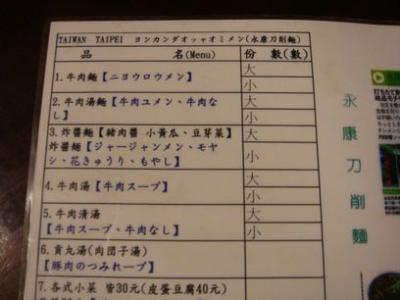 TAIWAN TAIPEI ヨンカンダオッャオミメン(永康刀削麵)
品 名(Menu) 份 數(數)
1.牛肉麵【ニヨウロウメン】 大
小
2.牛肉湯麵【牛肉ユメン・牛肉な
し】 大
小
3.炸醬麵【豬肉醬 小黃瓜、豆芽菜】
炸醬麵【ジャージャンメン・モヤ
シ、花きゅうり、もやし】 大
小
4.牛肉湯【牛肉スープ】 大
小
5.牛肉清湯
【牛肉スープ、牛肉なし】 大
小
6.貢丸湯(肉団子湯)
【豚肉のつみれープ】
7.各式小菜 皆30元(皮蛋豆腐40元)
永康刀削麵